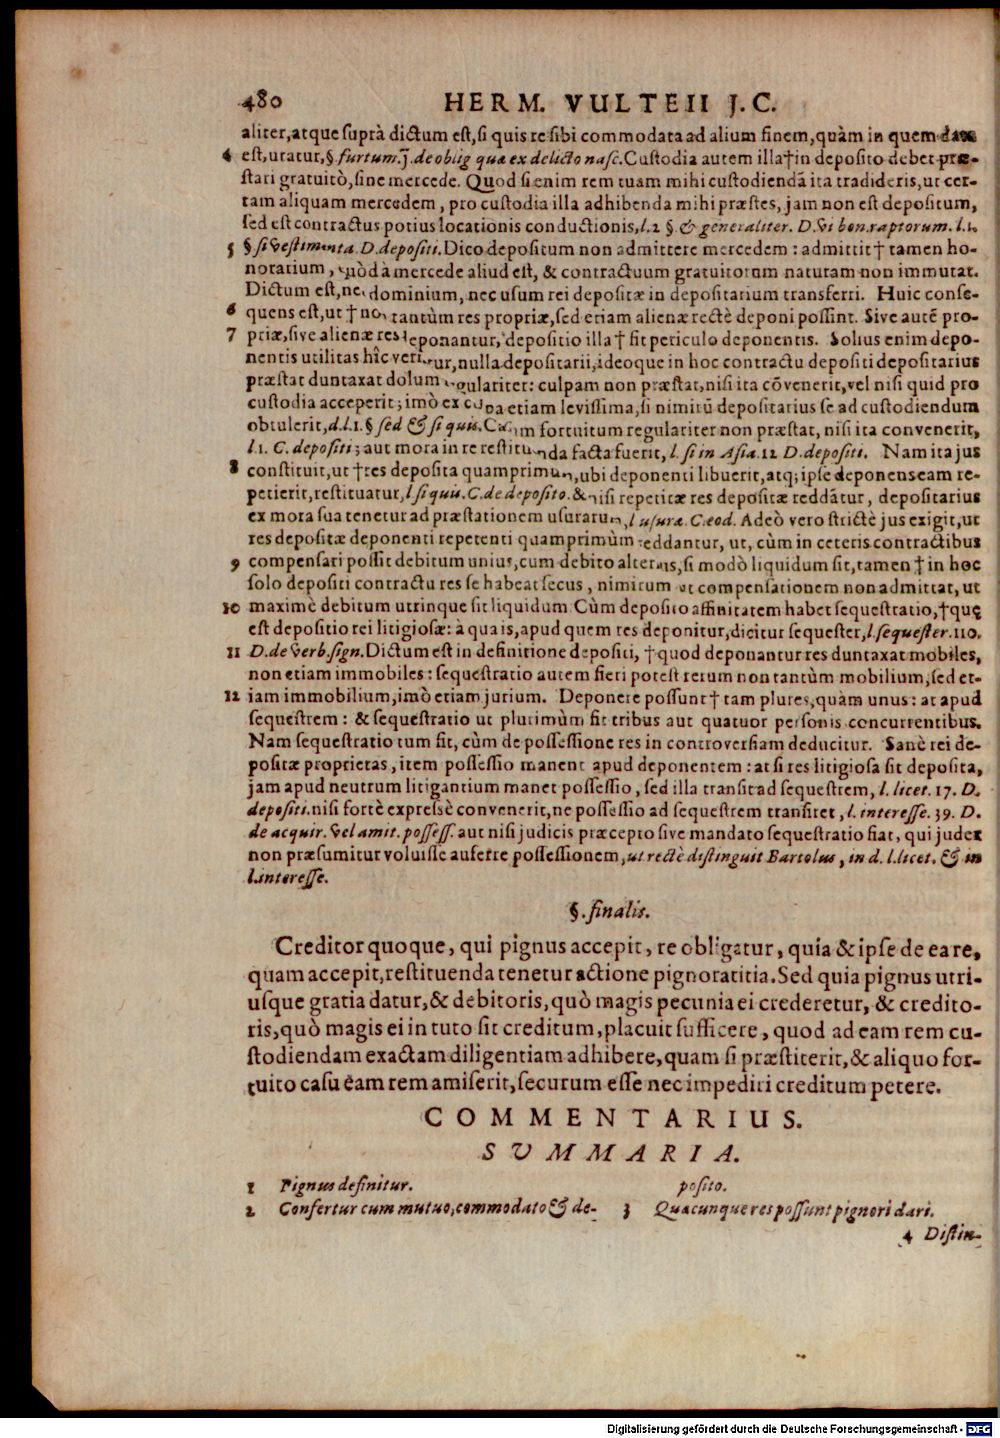 480 HERM. VULTEII J.C.
aliter, atque suprà dictum est, si quis re sibi commodata ad alium finem, quàm in quem data
4 est, utatur, §. furtum. j. de oblig quæ ex delicto nasc. Custodia autem illa † in deposito debet præ-
stari gratuitò, sine mercede. Quod si enim rem tuam mihi custodiendã ita tradideris, ut cer-
tam aliquam mercedem, pro custodia illa adhibenda mihi præstes, jam non est depositum,
sed est contractus potius locationis conductionis, l. 1 §. & generaliter. D. Vi bon. raptorum. l. 1.
5 § si vestimenta. D. depositi. Dico depositum non admittere mercedem: admittit † tamen ho-
norarium, quòd à mercede aliud est, & contractuum gratuitorum naturam non immutat.
Dictum est, nec dominium, nec usum rei depositæ in depositarium transferri. Huic conse-
6 quens est, ut † non tantùm res propriæ, sed etiam alienæ rectè deponi possint. Sive autẽ pro-
7 priæ, sive alienæ res deponantur, depositio illa † fit periculo deponentis. Solius enim depo-
nentis utilitas hîc vertitur, nulla depositarii, ideoque in hoc contractu depositi depositarius
præstat duntaxat dolum regulariter: culpam non præstat, nisi ita cõvenerit, vel nisi quid pro
custodia acceperit; imò ex culpa etiam levissima, si nimirũ depositarius se ad custodiendum
obtulerit, d. l. 1. § sed & si quis. Casum fortuitum regulariter non præstat, nisi ita convenerit,
l. 1. C. depositi; aut mora in re restituenda facta fuerit, l. si in Asia. 12 D. depositi. Nam ita jus
8 constituit, ut † res deposita quamprimum, ubi deponenti libuerit, atq; ipse deponens eam re-
petierit, restituatur, l si quis. C. de deposito. & nisi repetitæ res depositæ reddãtur, depositarius
ex mora sua tenetur ad præstationem usurarum, l usuræ. C. eod. Adeò vero strictè jus exigit, ut
res depositæ deponenti repetenti quamprimùm reddantur, ut, cùm in ceteris contractibus
9 compensari possit debitum unius, cum debito alterius, si modò liquidum sit, tamen † in hoc
solo depositi contractu res se habeat secus, nimirum ut compensationem non admittat, ut
10 maximè debitum utrinque sit liquidum Cùm deposito affinitatem habet sequestratio, † quę
est depositio rei litigiosæ: à qua is, apud quem res deponitur, dicitur sequester, l. sequester. 110.
11 D. de verb. sign. Dictum est in definitione depositi, † quod deponantur res duntaxat mobiles,
non etiam immobiles: sequestratio autem fieri potest rerum non tantùm mobilium, sed et-
12 iam immobilium, imò etiam jurium. Deponere possunt † tam plures, quàm unus: at apud
sequestrem: & sequestratio ut plurimùm fit tribus aut quatuor personis concurrentibus.
Nam sequestratio tum fit, cùm de possessione res in controversiam deducitur. Sanè rei de-
positæ proprietas, item possessio manent apud deponentem: at si res litigiosa sit deposita,
jam apud neutrum litigantium manet possessio, sed illa transit ad sequestrem, l. licet. 17. D.
depositi. nisi fortè expressè convenerit, ne possessio ad sequestrem transiret, l. interesse. 39. D.
de acquir. vel amit. possess. aut nisi judicis præcepto sive mandato sequestratio fiat, qui judex
non præsumitur voluisse auferre possessionem, ut rectè distinguit Bartolus, in d. l. licet. & in
l. interesse.
§. finalis.
Creditor quoque, qui pignus accepit, re obligatur, quia & ipse de ea re,
quam accepit, restituenda tenetur actione pignoratitia. Sed quia pignus utri-
usque gratia datur, & debitoris, quò magis pecunia ei crederetur, & credito-
ris, quò magis ei in tuto sit creditum, placuit sufficere, quod ad eam rem cu-
stodiendam exactam diligentiam adhibere, quam si præstiterit, & aliquo for-
tuito casu eam rem amiserit, securum esse nec impediri creditum petere.
COMMENTARIUS.
SUMMARIA.
1 Pignus definitur.
2 Confertur cum mutuo, commodato & de-
posito.
3 Quacunque res possunt pignori dari.
4 Distin-
Digitalisierung gefördert durch die Deutsche Forschungsgemeinschaft - DFG